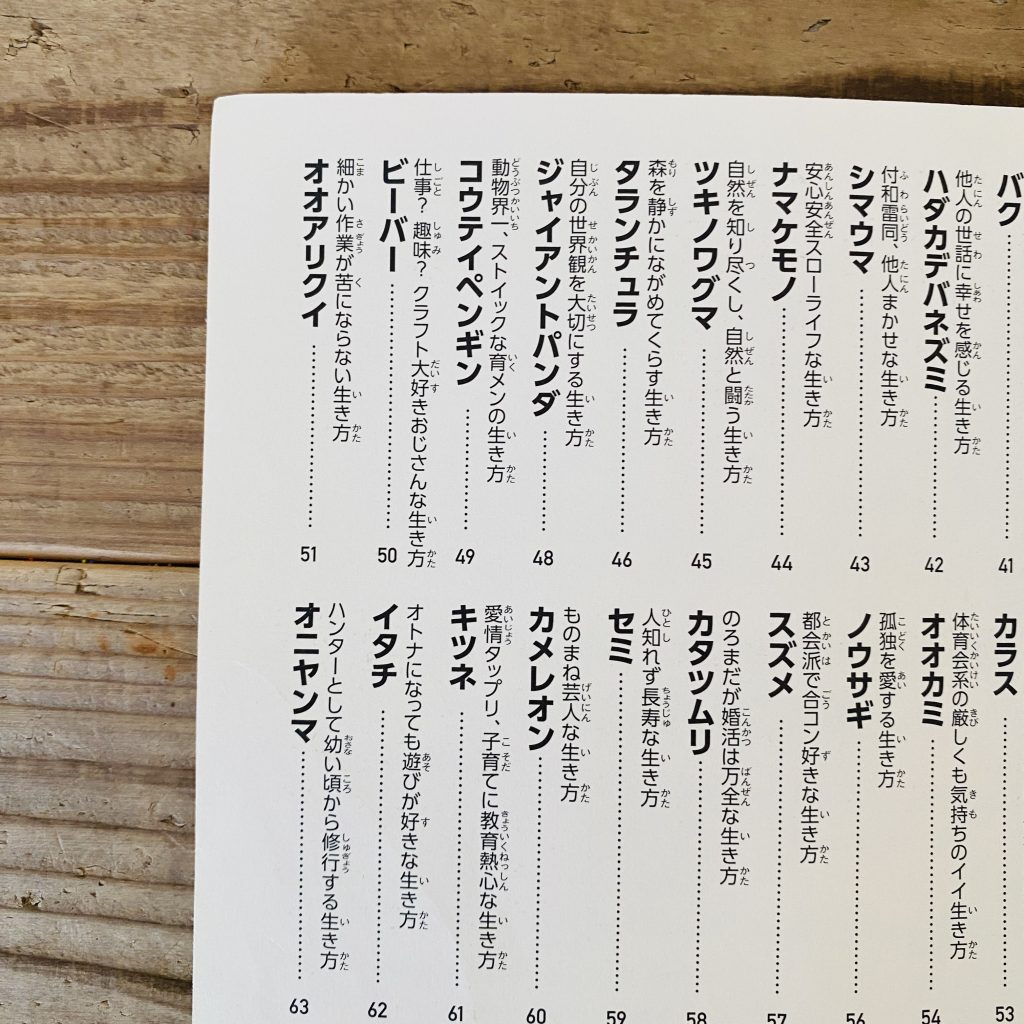 バク……41
他人の世話に幸せを感じる生き方
ハダカデバネズミ……42
付和雷同、他人まかせな生き方
シマウマ……43
安心安全スローライフな生き方
ナマケモノ……44
自然を知り尽くし、自然と闘う生き方
ツキノワグマ……45
森を静かにながめてくらす生き方
タランチュラ……46
自分の世界観を大切にする生き方
ジャイアントパンダ……48
動物界一、ストイックな育メンの生き方
コウテイペンギン……49
仕事？ 趣味？ クラフト大好きおじさんな生き方
ビーバー……50
細かい作業が苦にならない生き方
オオアリクイ……51
カラス……53
体育会系の厳しくも気持ちのイイ生き方
オオカミ……54
孤独を愛する生き方
ノウサギ……56
都会派で合コン好きな生き方
スズメ……57
のろまだが婚活は万全な生き方
カタツムリ……58
人知れず長寿な生き方
セミ……59
ものまね芸人な生き方
カメレオン……60
愛情タップリ、子育てに教育熱心な生き方
キツネ……61
オトナになっても遊びが好きな生き方
イタチ……62
ハンターとして幼い頃から修行する生き方
オニヤンマ……63